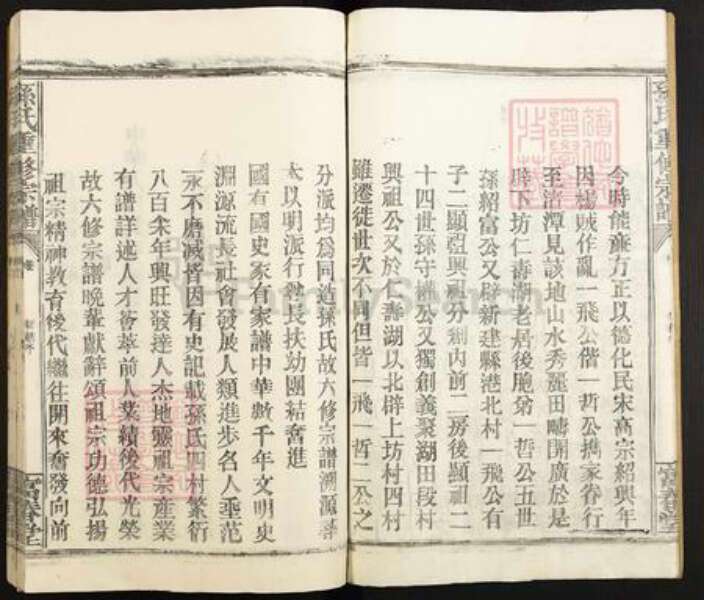 孫氏重修宗譜
今時能雍方正以德化民宋高宗紹興年
因楊賊作亂一飛公偕一哲公攜家眷行
至洽潭見該地山水秀麗田疇開廣於是
肇下坊仁壽湖老居後龍翁一哲公五世
孫紹富公又辟新建縣港北村一飛公有
子二顯亞興祖分創內前二房後顯祖二
十四世孫守權公又獨創義聚湖田段村
興祖公又於仁壽湖以北辟上坊村四村
雖遷徙世次不同但皆一飛一哲二公之
分派均為同造孫氏故六修宗譜溯源尋
本以明派行幼長扶幼團結奮進
國有國史家有家譜中華數千年文明史
淵源流長社會發展人類進步名人垂范
永不磨滅皆因有史記載孫氏四村繁衍
八百余年興旺發達人杰地靈祖宗產業
有譜詳述人才薈萃前人業績後代光榮
故六修宗譜晚輩獻辭頌祖宗功德弘揚
祖宗精神教育後代繼往開來奮發向前
孫氏重修宗譜
卷
富春堂
FamilySearch